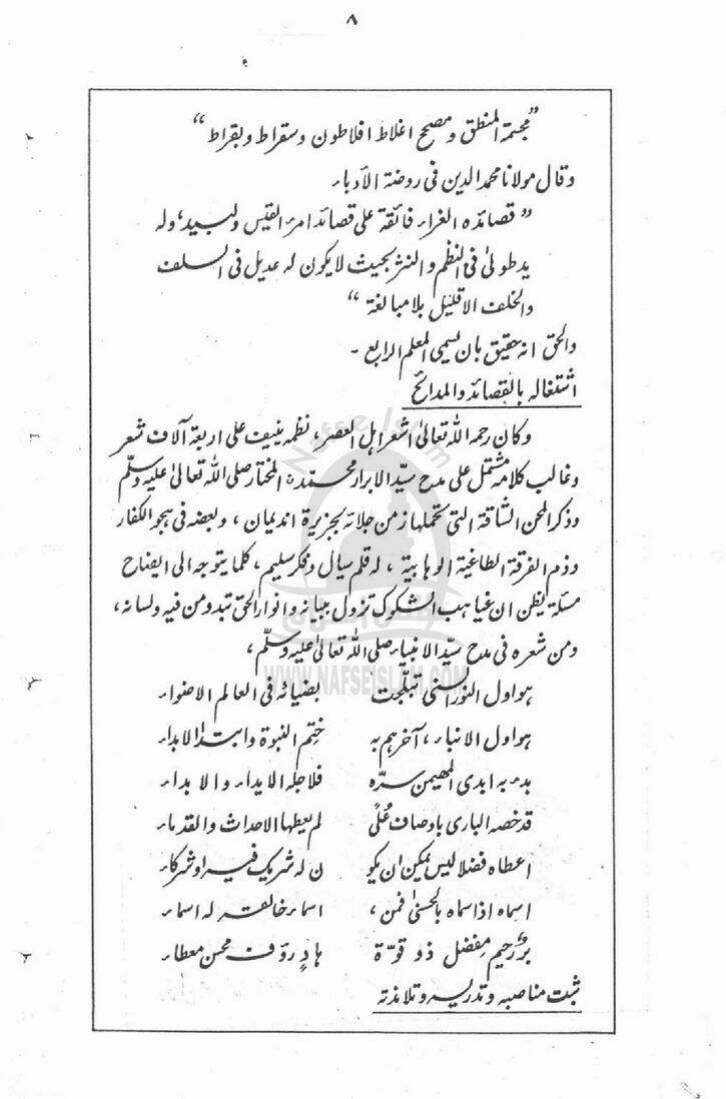 ٨
”مجتهد المنطق ومصحح اغلاط افلاطون وسقراط وبقراط“
وقال مولانا محمد الدين فى روضة الأدباء
”قصائده الغراء فائقة على قصائد امرء القيس ولبيد، وله
يد طولىٰ فى النظم والنثر بحيث لا يكون له عديل فى السلف
والخلف الا قليل بلا مبالغة“
والحق انه حقيق بان يسمى المعلم الرابع ۔
اشتغاله بالقصائد والمدائح
وكان رحمه الله تعالىٰ اشعر اهل العصر، نظمه ينيف على اربعة آلاف شعر
وغالب كلامه مشتمل على مدح سيّد الابرار محمّد المختار صلى الله تعالىٰ عليه وسلّم
وذكر المحن الشاقة التى تحملها زمن جلائه بجزيرة انديمان، وبعضه فى هجو الكفار
وذم الفرقة الطاغية الوهابية، له قلم سيال وفكر سليم، كلما يتوجه الى ايضاح
مسئلة يظن ان غياهب الشكوك تزول ببيانه وانوار الحق تبدو من فيه ولسانه،
ومن شعره فى مدح سيّد الانبياء صلى الله تعالىٰ عليه وسلّم،
هو اول النور السنى تبلّجت بضيائه فى العالم الاضواء
هو اول الانباء، آخرهم به ختم النبوة وابتداء الابداء
بدء به ابدى المهيمن سرّه فلاجله الايداء والابداء
قد خصه البارى باوصاف عُلىً لم يعطها الاحداث والقدماء
اعطاه فضلا ليس يمكن ان يكو ن له شريك فيه او شركاء
اسماه اذ اسماه بالحسنىٰ فمن، اسماء خالقه له اسماء
برٌّ رحيم مِفضل ذو قوّة هادٍ رؤف محسن معطاء
ثبت مناصبه وتدريسه وتلامذته
Nafse Islam
WWW.NAFSEISLAM.COM